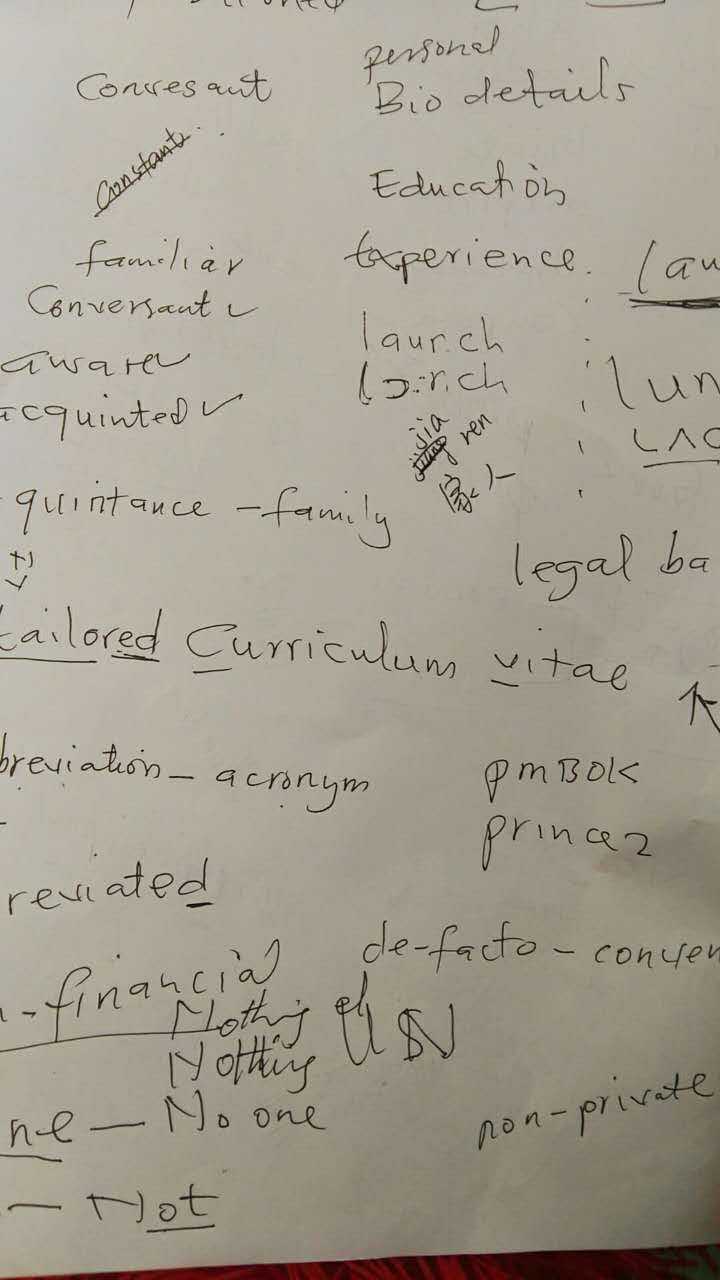 personal
Convesant Bio details
Constant
Education
familiar Experience
Conversant
aware
launch
acquinted
jia ren
家人
quintance - family
legal ba
tailored Curriculum vitae
breviation - acronym pmBOK
prince2
reviated
de-facto - conven
-financial
Nothing
Nothing
ne - No one non-private
- Not